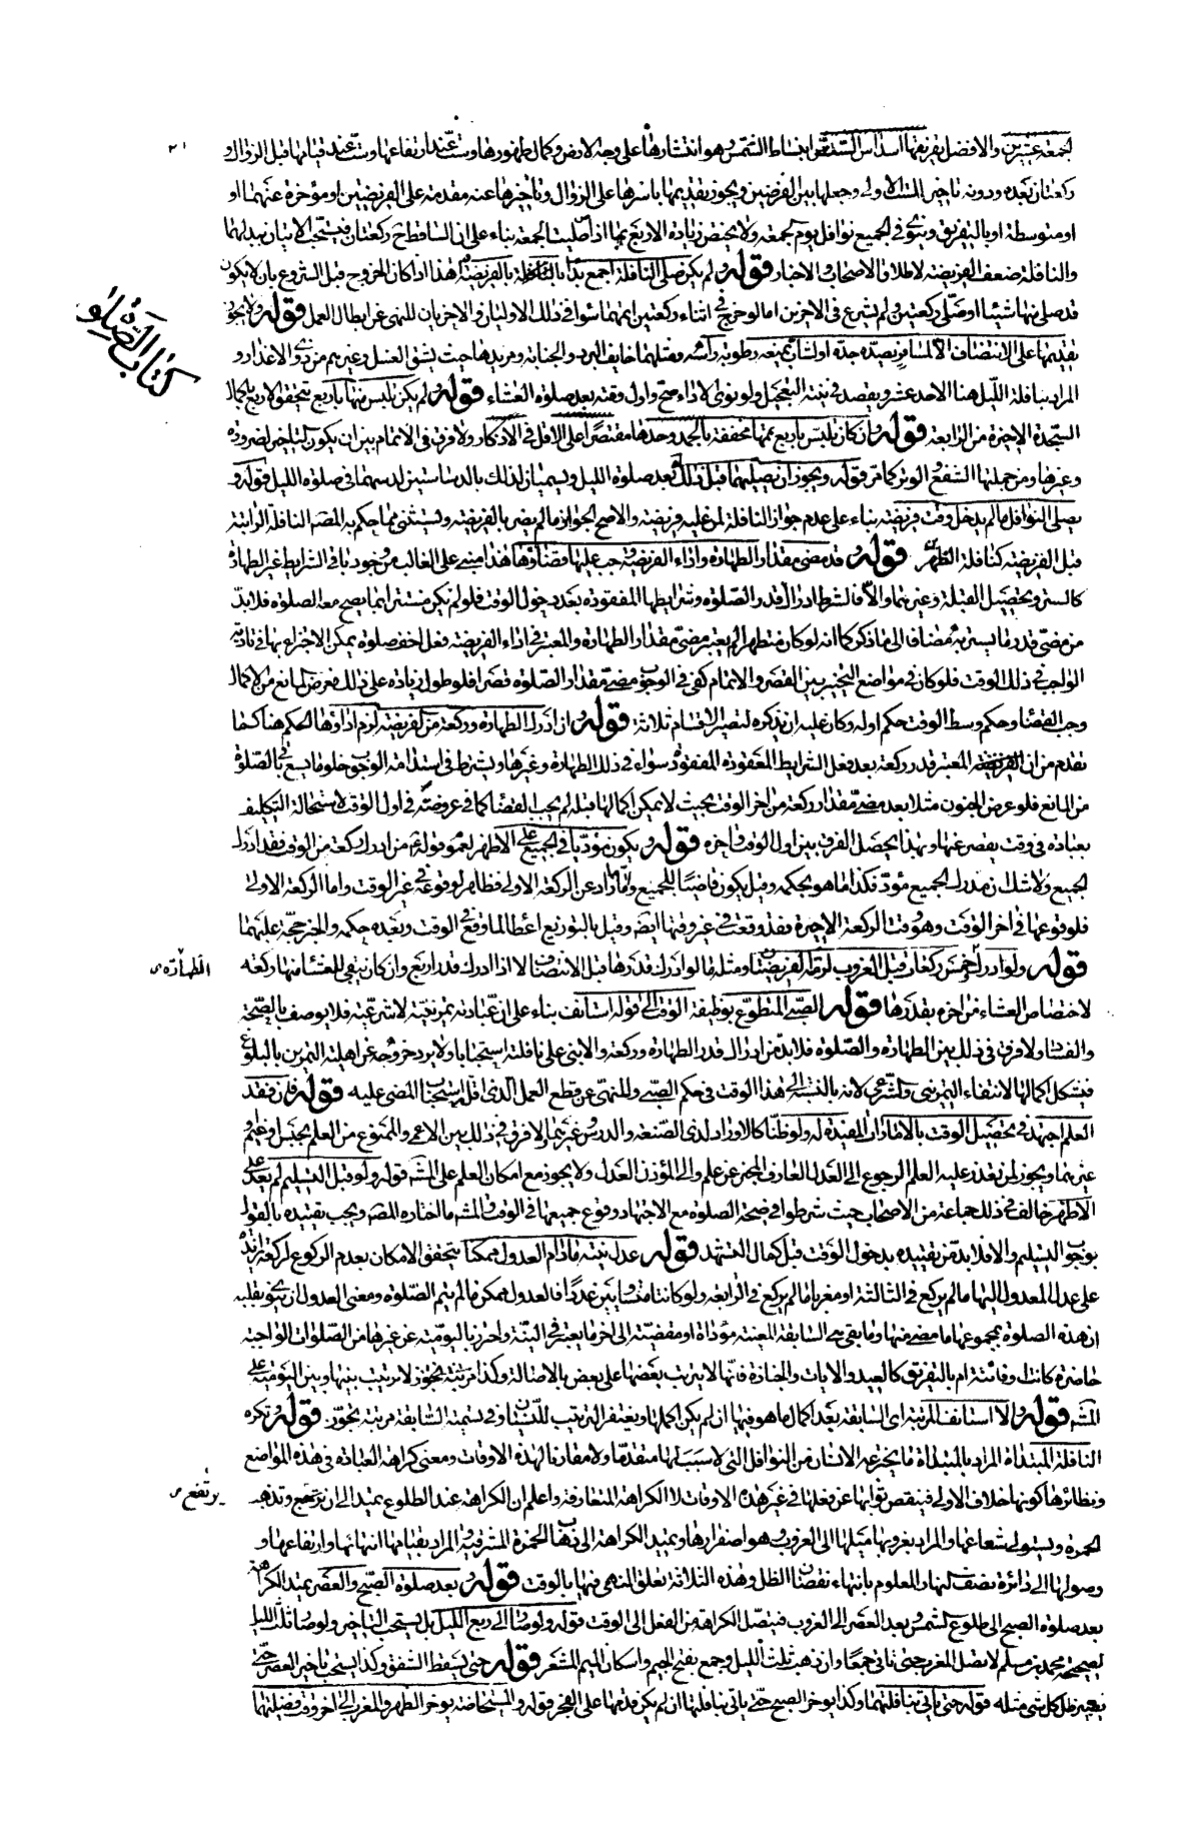 ٢١
لجمعة عشرين والافضل تفريقها اسداس الست عند انبساط الشمس وهو انتشارها على وجه الارض وكمال ظهورها وست عند ارتفاعها وست عند قيامها قبل الزوال و
ركعتان بعده ودونه تاخير الست الاولى وجعلها بين الفرضين ويجوز تقديمها باسرها على الزوال وتاخيرها عنه مقدمة على الفريضتين او مؤخرة عنهما او
او متوسطة او بالتفريق وينوى في الجميع نوافل يوم الجمعة ولا يختص زيادة الاربع بما اذا صليت الجمعة بناء على ان الساقط ح ركعتان فيستحب الاتيان ببدلهما
والنافلة ضعف الفريضة لاطلاق الاصحاب والاخبار قوله ولم يكن صلى النافلة اجمع بدأ بالفريضة هذا اذا كان الخروج قبل الشروع بان لا يكون
قد صلى منها شيئا او صلى ركعتين ولم يشرع في الاخرين اما لو خرج في اثناء ركعتين اتمهما سواء في ذلك الاوليان والاخريان للنهى عن ابطال العمل قوله ولا يجوز
كتاب الصلوة
تقديمها على الانتصاف الا لمسافر يصده جده او لشاب يمنعه رطوبة رأسه ومثلهما خايف البرد والجنابة ومريدها حيث يشق الغسل وغيرهم من ذوى الاعذار و
المراد بنافلة الليل هنا الاحد عشر ويقصد في نيته التعجيل ولو نوى الاداء صح واول وقته بعد صلوة العشاء قوله ولم يكن تلبس منها باربع يتحقق الاربع بكمال
السجدة الاخيرة من الرابعة قوله وان كان تلبس باربع تمها مخففة بالحمد وحدها مقتصرا على الاقل في الاذكار ولا فرق في الاتمام بين ان يكون التاخير لضرورة
وغيرها ومن جملتها الشفع والوتر كما مر قوله ويجوز ان يصليهما قبل ذلك بعد صلوة الليل ويسميان لذلك بالدساستين لدسهما في صلوة الليل قوله و
يصلى النوافل ما لم يدخل وقت فريضة بناء على عدم جواز النافلة لمن عليه فريضة والاصح الجواز ما لم يضر بالفريضة ويستثنى مما حكم به المصنف النافلة الراتبة
قبل الفريضة كنافلة الظهرين قوله وقد مضى مقدار الطهارة واداء الفريضة وجب عليها قضاؤها هذا مبنى على الغالب من وجود باقى الشرايط غير الطهارة
كالستر وتحصيل القبلة وغيرهما والا فالشرط ادراك قدر الصلوة وشرايطها المفقودة بعد دخول الوقت فلو لم تكن مستترا بما يصح معه الصلوة فلا بد
من مضى قدر ما يستر به مضافا الى ما ذكر كما انه لو كان متطهرا لم يعتبر مضى مقدار الطهارة والمعتبر في اداء الفريضة فعل اخف صلوة يمكن الاجتزاء بها في تادية
الواجب في ذلك الوقت فلو كان في مواضع التخيير بين القصر والاتمام كفى في الوجوب مضى مقدار الصلوة قصرا فلو طول زيادة على ذلك فعرض المانع من الاكمال
وجب القضاء وحكم وسط الوقت حكم اوله وكان عليه ان يذكره لتصير الاقسام ثلاثة قوله وان ادرك الطهارة وركعة من الفريضة لزم اداؤها الحكم هنا كما
تقدم من ان المعتبر قدر ركعة بعد فعل الشرايط المفقودة سواء في ذلك الطهارة وغيرها ويشترط في استدامة الوجوب خلو ما يسع باقى الصلوة
من المانع فلو عرض الجنون مثلا بعد مضى مقدار ركعة من اخر الوقت بحيث لا يمكن اكمالها قبله لم يجب القضاء كما في عروضه في اول الوقت لاستحالة التكليف
بعبادة في وقت يقصر عنها وبهذا يحصل الفرق بين اول الوقت واخره قوله ويكون مؤديا في الجميع على الاظهر لعموم قوله من ادرك ركعة من الوقت فقد ادرك
الجميع ولا شك ان مدرك الجميع مؤد فكذا ما هو بحكمه وقيل يكون قاضيا للجميع واما ما زاد عن الركعة الاولى فظاهر لوقوعه في غير الوقت واما الركعة الاولى
فلوقوعها في اخر الوقت وهو وقت الركعة الاخيرة فقد وقعت في غير وقتها ايضا وقيل بالتوزيع اعطاء لما وقع في الوقت وبعده حكمه والخبر حجة عليهما
قوله ولو ادرك خمس ركعات قبل الغروب لزمه الفريضتان ومثله ما لو ادرك قدرها قبل الانتصاف لا اذا ادرك قدر اربع وان كان تبقى للعشاء منها ركعة
الطهارة ى
لاختصاص العشاء من اخره بقدرها قوله الصبى المتطوع بوظيفة الوقت الى قوله استانف بناء على ان عبادته تمرينية لا شرعية فلا يوصف بالصحة
والفساد ولا فرق في ذلك بين الطهارة والصلوة فلا بد من ادراك قدر الطهارة وركعة والا بنى على نافلته استحبابا ولا يرد خروجه عن اهلية التمرين بالبلوغ
فيشكل اكمالها لانتفاء التمرينى والشرعى لانه بالنسبة الى هذا الوقت في حكم الصبى وللنهى عن قطع العمل الذى اقله استحباب المضى عليه قوله فان فقد
العلم اجتهد في تحصيل الوقت بالامارات المفيدة له ولو ظنا كالاوراد لدى الصنعة والدرس وغيرهما ولا فرق في ذلك بين الاعمى والممنوع من العلم بحبس او غيم او
غيرهما ويجوز لمن تعذر عليه العلم الرجوع الى العدل العارف المخبر عن علم والى المؤذن العدل ولا يجوز مع امكان العلم على المشهور قوله ولو قبل التسليم لم يعد على
الاظهر خالف في ذلك جماعة من الاصحاب حيث شرطوا في صحة الصلوة مع الاجتهاد وقوع جميعها في الوقت والمشهور ما اختاره المصنف ويجب تقييده بالقول
بوجوب التسليم والا فلا بد من تقييده بدخول الوقت قبل كمال التشهد قوله عدل بنيته ما دام العدول ممكنا يتحقق الامكان بعدم الركوع لركعة زايدة
على عدد المعدول اليها ما لم يركع في الثالثة او مغربا ما لم يركع في الرابعة ولو كانتا متساويتين عددا فالعدول ممكن ما لم يتم الصلوة ومعنى العدول ان ينوى بقلبه
ان هذه الصلوة بمجموعها ما مضى منها وما بقى هى السابقة المعينة مؤداة او مقضية الى اخر ما يعتبر في النية واحترز باليومية عن غيرها من الصلوات الواجبة
حاضرة كانت او فائتة ام بالتفريق كالعيد والايات والجنازة فانها لا يترتب بعضها على بعض بالاصالة وكذا مرتبة تجوز لا ترتيب بينها وبين اليومية على
المشهور قوله والا استانف المرتبة اى السابقة بعد اكمال ما هو فيها ان لم يكن اكملها ويغتفر الترتيب للنسيان وفي تسمية السابقة مرتبة تجوز قوله وتكره
النافلة المبتدأة المراد بالمبتدأة ما يخترعه الانسان من النوافل التى لا سبب لها متقدما ولا مقارنا لهذه الاوقات ومعنى كراهة العبادة في هذه المواضع
ونظائرها كونها خلاف الاولى فينقص ثوابها عن فعلها في غير هذه الاوقات لا الكراهة المتعارفة واعلم ان الكراهة عند الطلوع يمتد الى ان ترتفع وتذهب
يرتفع س
الحمرة ويستولى شعاعها والمراد بغروبها ميلها الى الغروب وهو اصفرارها ويمتد الكراهة الى ذهاب الحمرة المشرقية والمراد بقيامها انتهائها وارتفاعها و
وصولها الى دائرة نصف النهار المعلوم بانتهاء نقصان الظل وهذه الثلاثة تعلق النهى فيها بالوقت قوله وبعد صلوة الصبح والعصر يمتد الكراهة
بعد صلوة الصبح الى طلوع الشمس وبعد العصر الى الغروب فيتصل الكراهة من الفعل الى الوقت قوله ولو صار الى ربع الليل بل يستحب التاخير ولو صار ثلث الليل
لصحيحة محمد بن مسلم لا تصل المغرب حتى تاتى جمعا وان ذهب ثلث الليل وجمع بفتح الجيم واسكان الميم المشعر قوله حتى يسقط الشفق وكذا يستحب تاخير العصر حتى
يصير ظل كل شى مثله قوله حتى ياتى بنافلتهما وكذا يؤخر الصبح حتى ياتى بنافلتها ان لم يكن قدمها على الفجر قوله والمستحاضة يؤخر الظهر والمغرب الى اخر وقت فضيلتهما